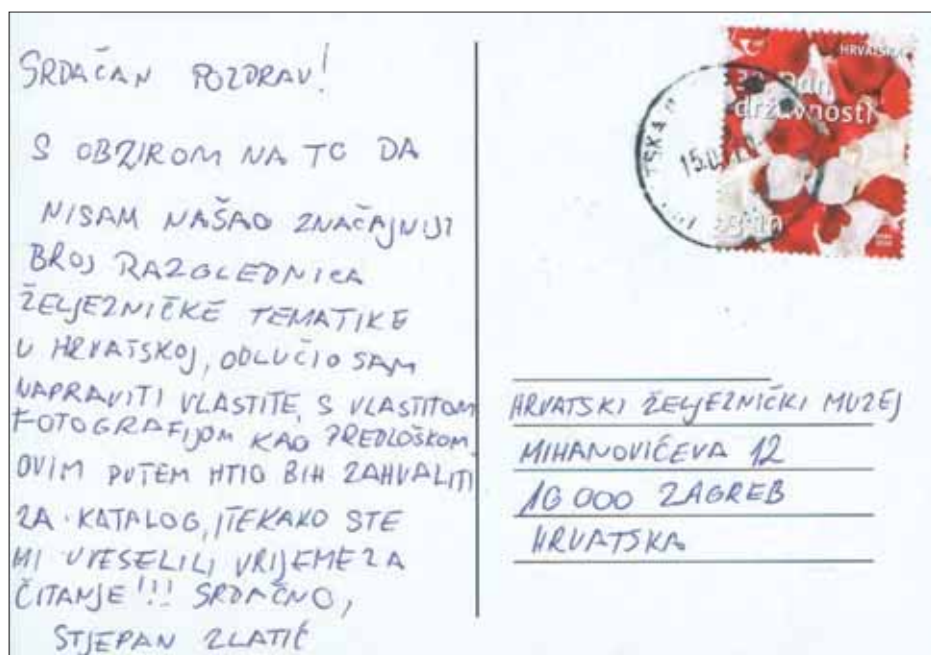 SRDAČAN POZDRAV!
S OBZIROM NA TO DA
NISAM NAŠAO ZNAČAJNIJI
BROJ RAZGLEDNICA
ŽELJEZNIČKE TEMATIKE
U HRVATSKOJ, ODLUČIO SAM
NAPRAVITI VLASTITE, S VLASTITOM
FOTOGRAFIJOM KAO PREDLOŠKOM.
OVIM PUTEM HTIO BIH ZAHVALITI
ZA KATALOG, ITEKAKO STE
MI UVESELILI VRIJEME ZA
ČITANJE!!! SRDAČNO,
STJEPAN ZLATIĆ
HRVATSKA
Dan
državnosti
HRVATSKI ŽELJEZNIČKI MUZEJ
MIHANOVIĆEVA 12
10 000 ZAGREB
HRVATSKA